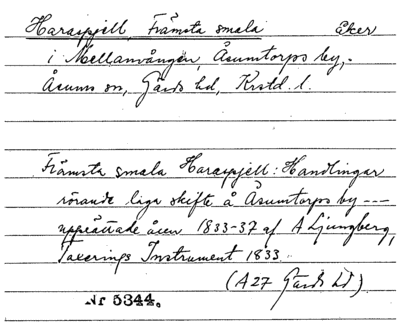 Haraspjell, Främsta smala Åker
i Mellanvången, Åsumtorps by,
Åsums sn, Gärds hd, Krstd. l.
Främsta smala Haraspjell: Handlingar
rörande laga skifte å Åsumtorps by ---
upprättade åren 1833-37 af A Ljungberg,
Taxerings Instrument 1833.
(A27 Gärds hd)
Nr 5344.